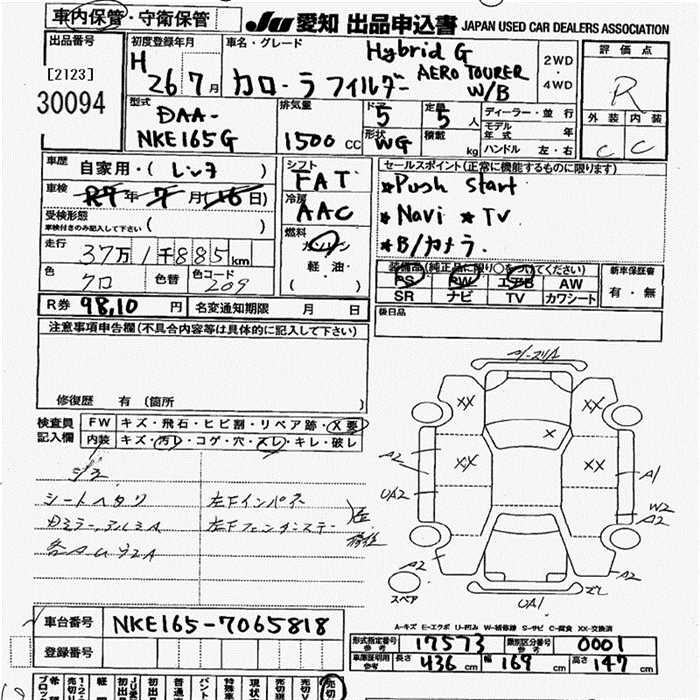 車内保管・守衛保管
JU 愛知 出品申込書 JAPAN USED CAR DEALERS ASSOCIATION
出品番号
[2123]
30094
初度登録年月
H 26 7 月
車名・グレード
Hybrid G
カローラフィルダー AERO TOURER W/B
2WD・4WD
評価点
R
外装 内装
C C
型式
DAA-
NKE165G
排気量
1500 CC
ドア 5
形状 WG
定員 5 人
積載 kg
ディーラー・並行
モデル年式 年
ハンドル 左・右
車歴 自家用・( レンタ )
車検 R7年7月(16日)
受検形態
車検付きのみ記入して下さい ( )
走行 37万1千885km
色 クロ 色替 色コード 209
シフト
FAT
冷房
AAC
燃料
ガソリン
軽油・
( )
セールスポイント(正常に機能するものに限ります)
★Push start
★Navi ★TV
★B/カメラ.
装備品(純正品に限り○をつけてください)
PS PW エアB AW
SR ナビ TV カワシート
新車保証書
有・無
後日品
R券 98,10 円 名変通知期限 月 日
注意事項申告欄(不具合内容等は具体的に記入して下さい)
修復歴 有 (箇所 )
検査員記入欄
FW キズ・飛石・ヒビ割・リペア跡・X要
内装 キズ・汚レ・コゲ・穴・スレ・キレ・破レ
シートヘタリ 左Fインパネ
左Fフェンダーステー
XX XX
X
XX XX
A2
UA2
A2
A1
W2
A2
A2
UA1
スペア
A-キズ E-エクボ U-凹み W-補修跡 S-サビ C-腐食 XX-交換済
車台番号 NKE165-7065818
登録番号
形式指定番号 参考 17573 類別区分番号 参考 0001
車庫証明用 参考 長さ 436 cm 幅 169 cm 高さ 147 cm